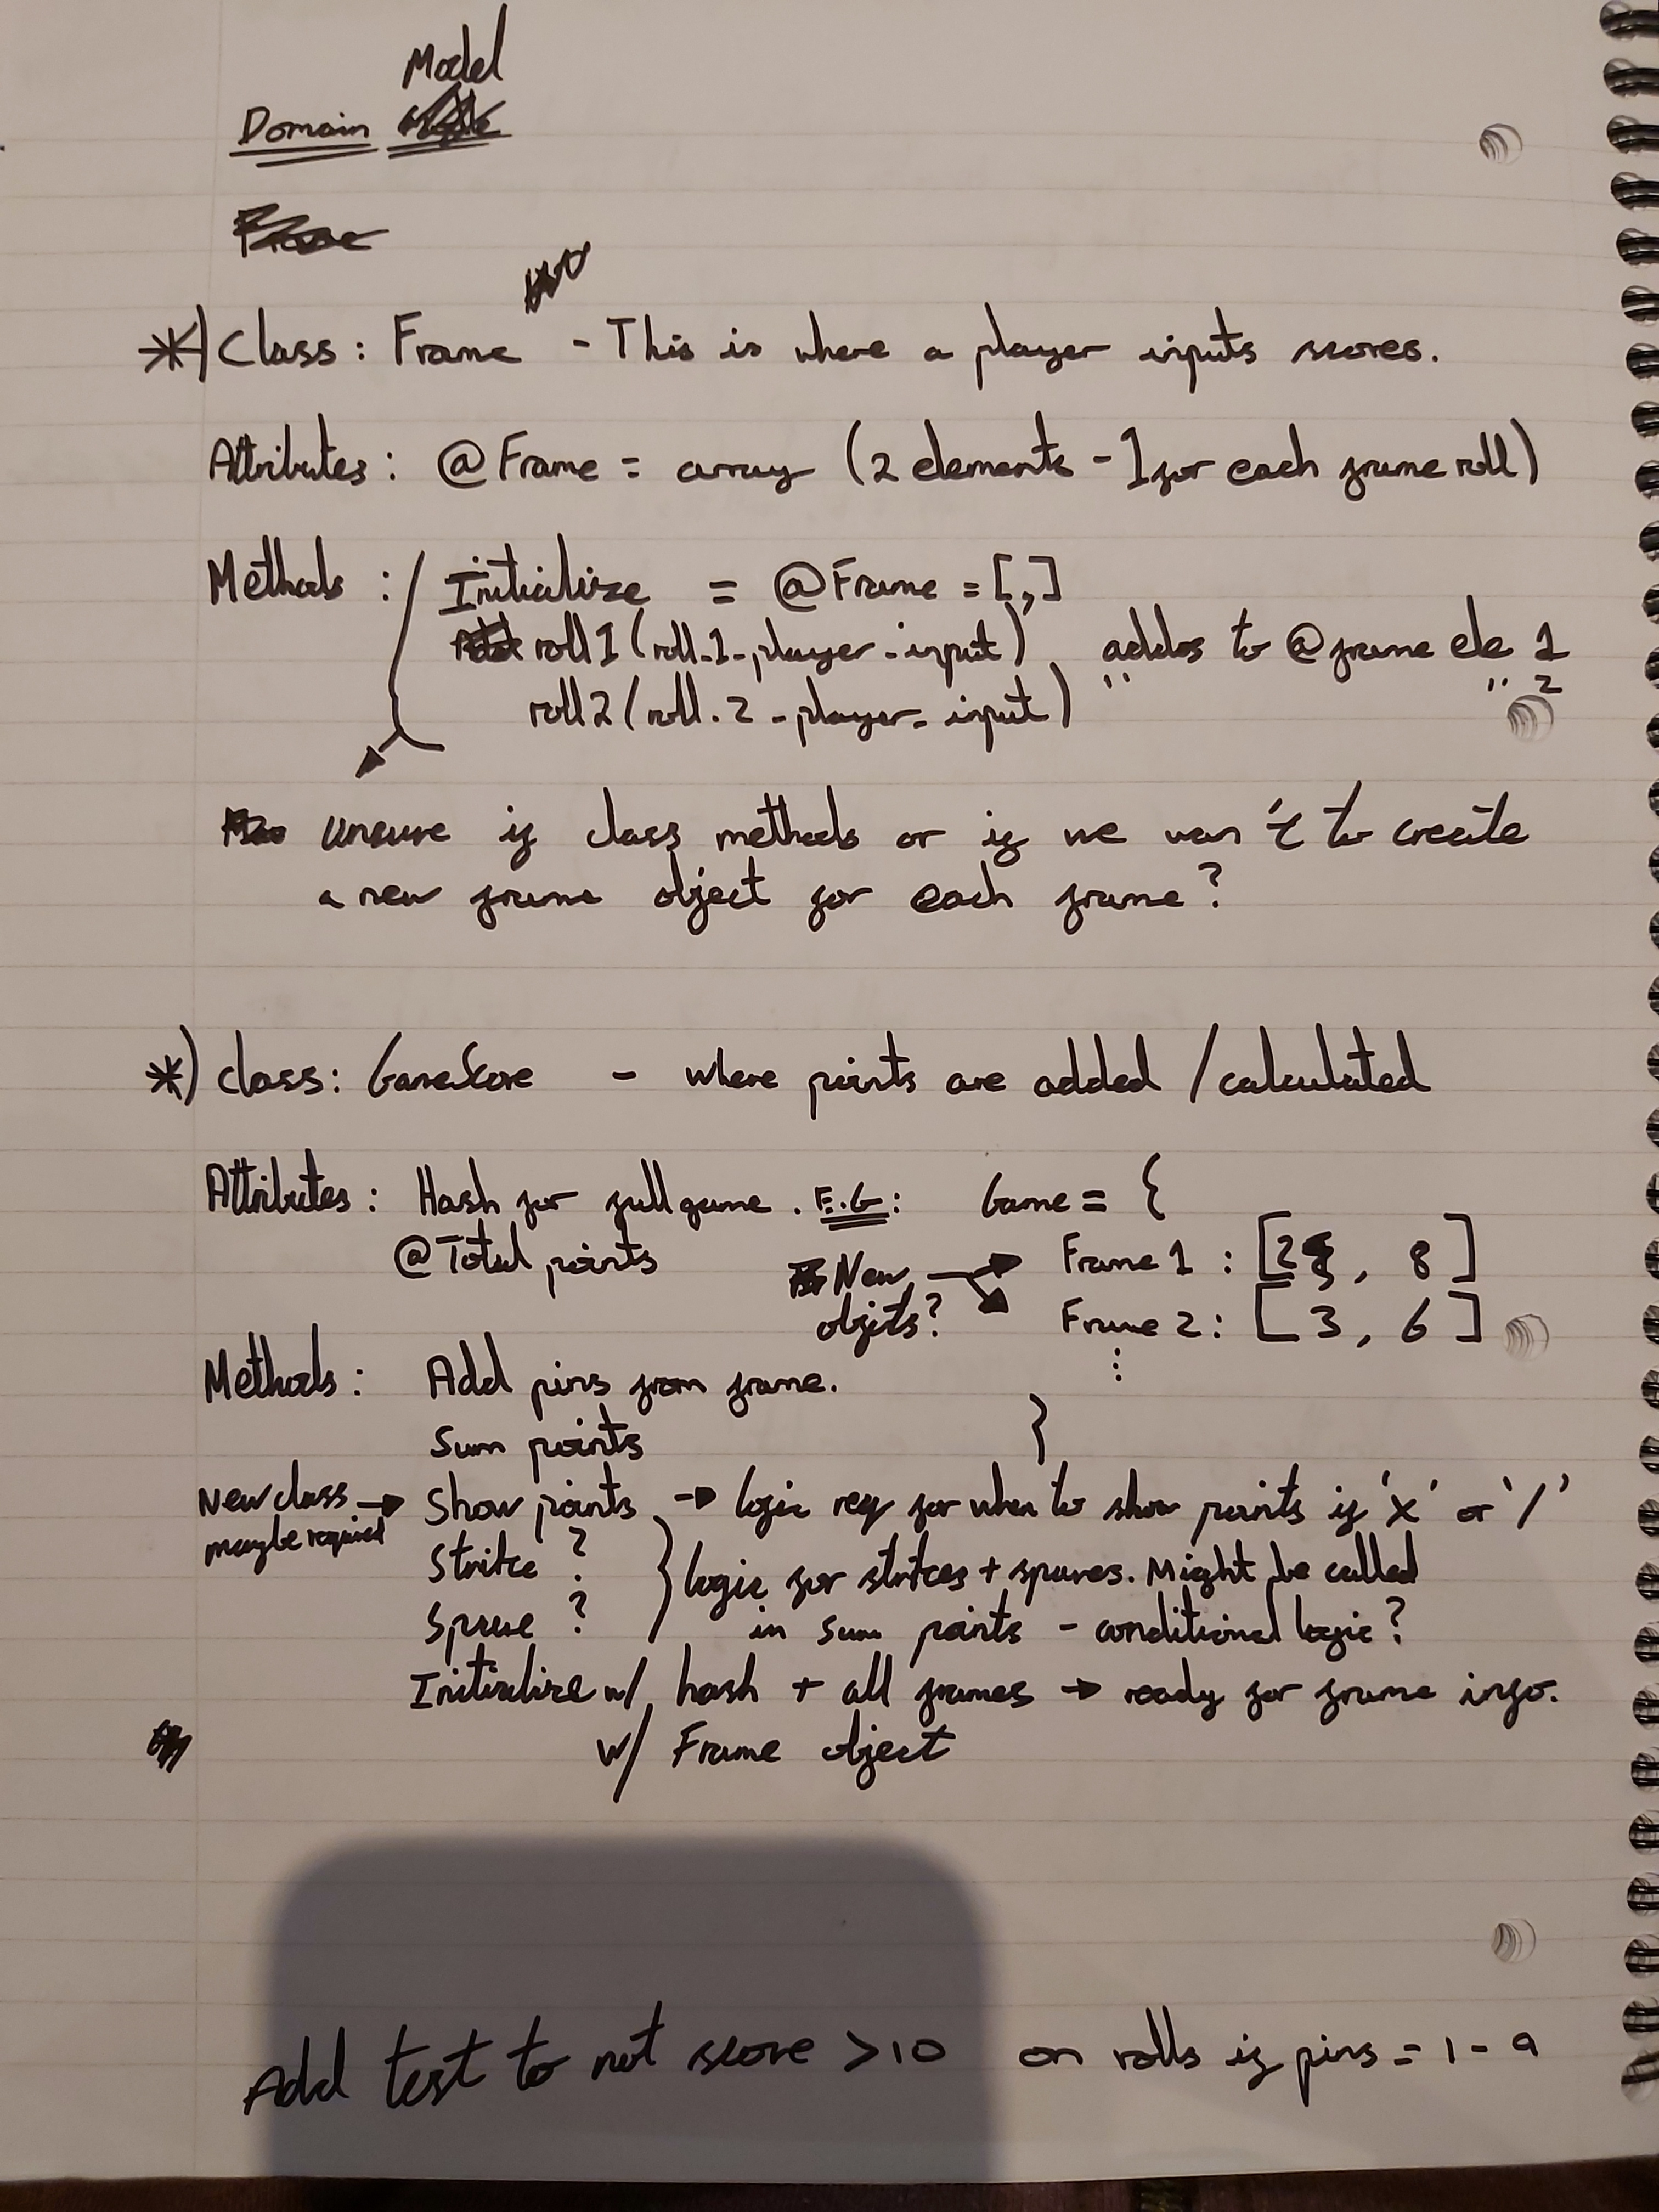 Model
Domain
*) Class: Frame - This is where a player inputs scores.
Attributes: @Frame = array (2 elements - 1 for each frame roll)
Methods: Initialize = @Frame = [,]
roll1(roll_1_player_input) addes to @frame ele 1
roll2(roll_2_player_input) " " 2
unsure if class methods or if we wan't to create
a new frame object for each frame?
*) class: GameScore - where points are added / calculated
Attributes: Hash for full game. E.G: Game = {
@Total points
New objects? → Frame 1: [2, 8]
Frame 2: [3, 6]
⋮
}
Methods: Add pins from frame.
Sum points
New class maybe required → Show points → logic req for when to show points if 'X' or '/'
Strike?
Spare?
} logic for strikes + spares. Might be called
in sum points - conditional logic?
Initialize w/ hash + all frames → ready for frame info.
w/ Frame object
Add test to not score >10 on rolls if pins = 1-9